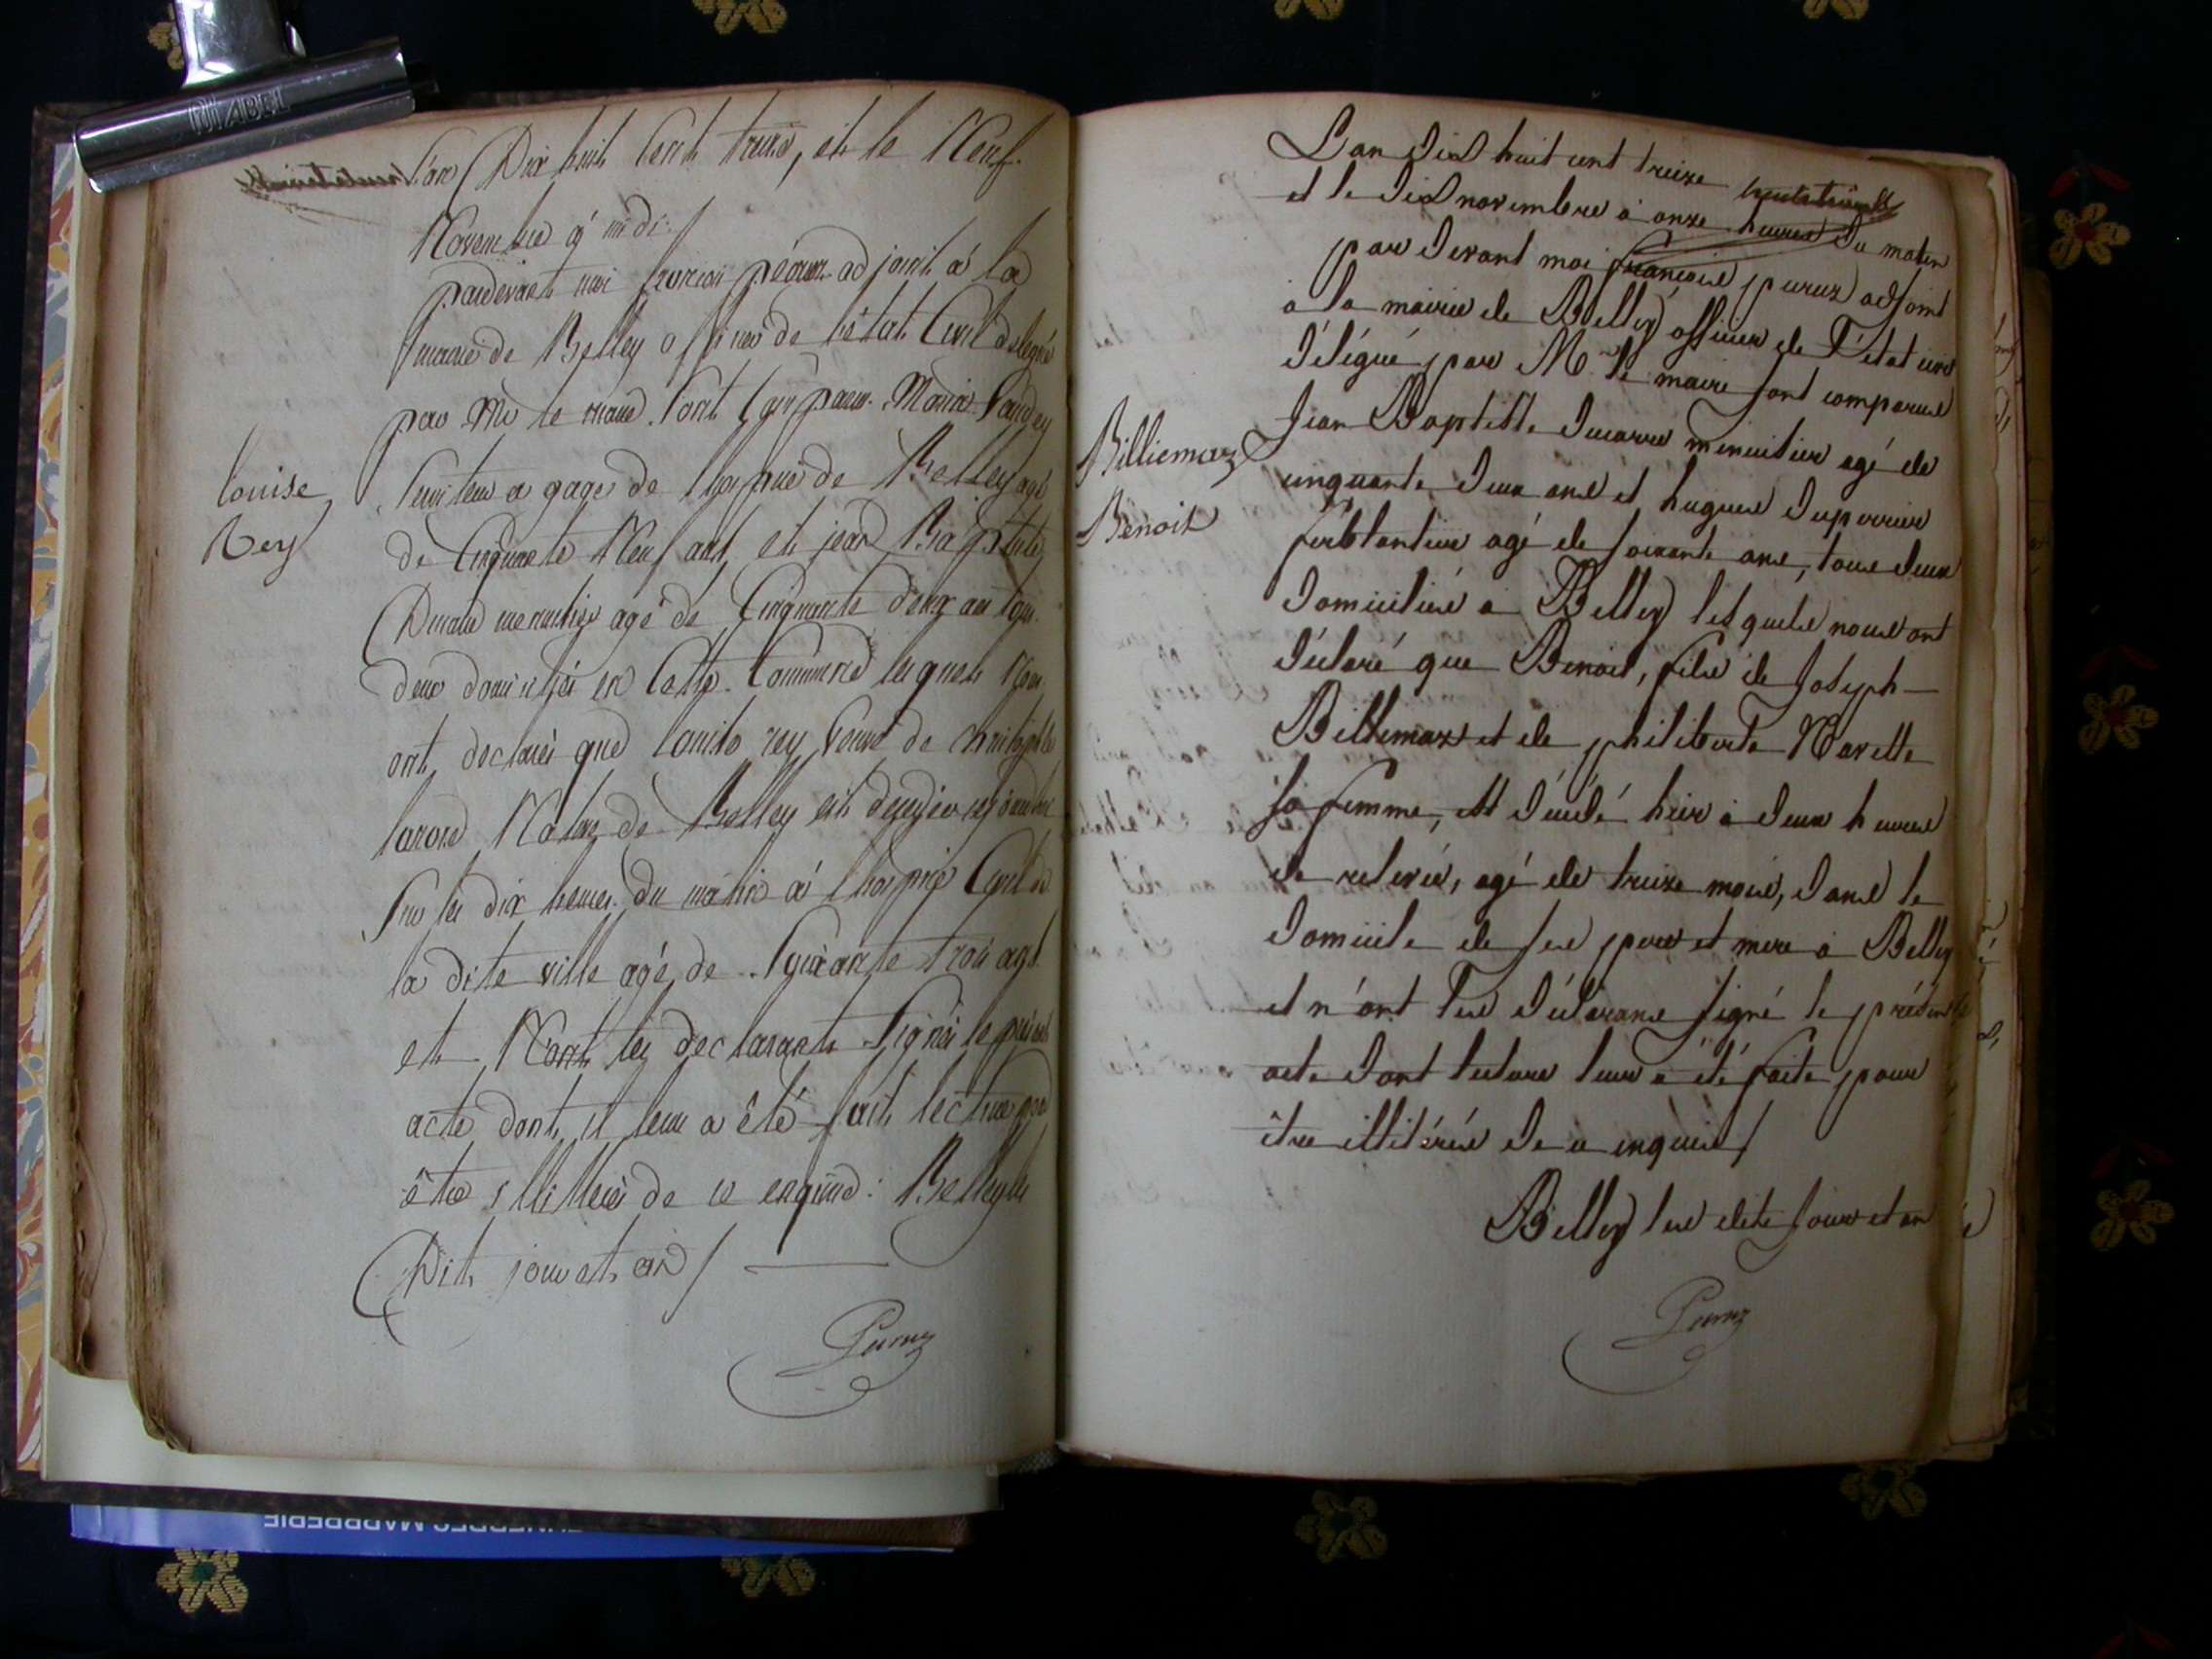 l'an Dix huit Cent treize, et le Neuf
Novembre à midi /
pardevant moi françois peruz adjoint à la
mairie de Belley officier de l'état Civil délégué
par Mr le maire. sont Comparus
serviteur a gage de l'hospice de Belley agé
Louise
Rey
de Cinquante Neuf ans, et jean Baptiste
Ducarre menuisier agé de Cinquante deux ans tous
deux domiciliés en Cette Commune lesquels Nous
ont declarés que Louise rey veuve de
de Belley est decedée
sur les dix heures du matin à l'hospice Civil de
la dite ville agé de soixante trois ans
et N'ont les declarants signés le présent
acte dont il leur a été fait lecture pour
être illiterés de ce enquis: Belley les
Dits jour et an /
Peruz
L'an dix huit cent treize
et le dix novembre à onze heures du matin
par devant moi françois peruz adjoint
à la mairie de Belley officier de l'état civil
délégué par Mr le maire sont comparus
Billiemaz
Benoit
Jean Baptiste Ducarre menuisier agé de
cinquante deux ans et hugues Duperrier
ferblantier agé de soixante ans, tous deux
domiciliés à Belley lesquels nous ont
déclaré que Benoit, fils de Joseph
Billiemaz et de philiberte Navette
sa femme, est décédé hier à deux heures
de relevée, agé de treize mois, dans le
domicile de ses pere et mere à Belley
et n'ont les déclarans signé le présent
acte dont lecture leur a été faite pour
être illitérés de ce enquis /
Belley les dits jour et an
Peruz